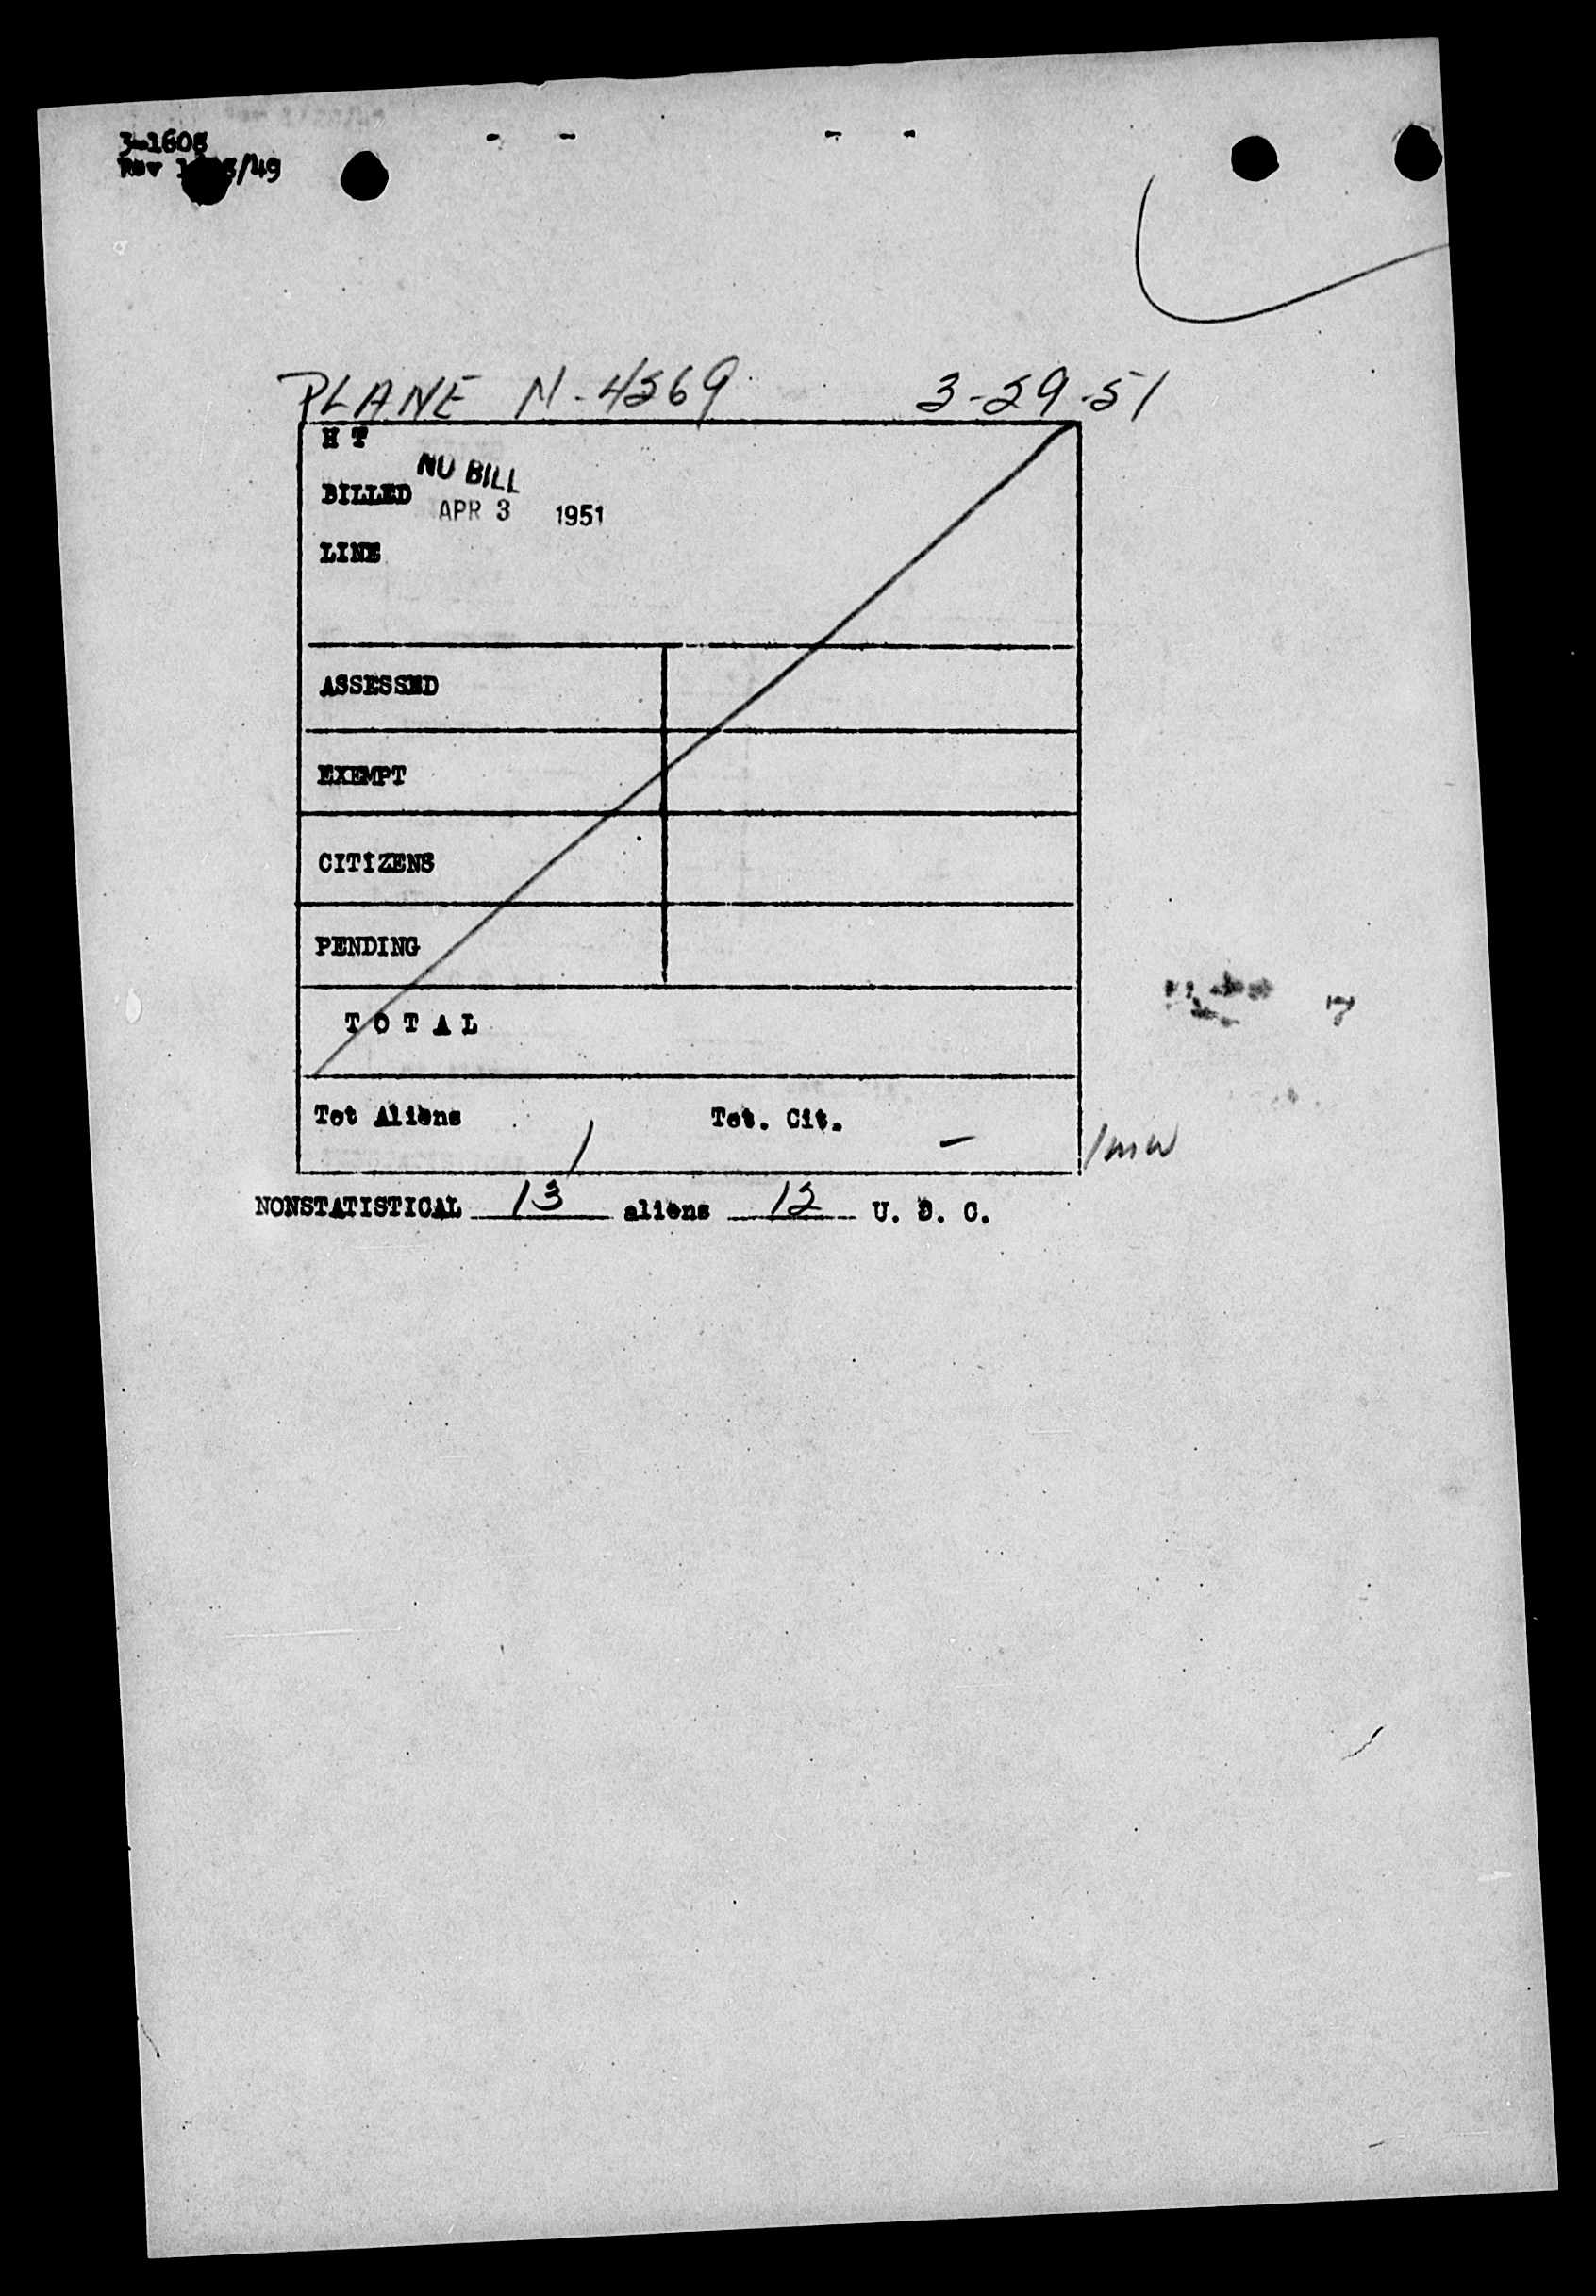 Rev
PLANE N-4269 3-29-51
H T
NO BILL
BILLED
APR 3 1951
LINE
ASSESSED
EXEMPT
CITIZENS
PENDING
T O T A L
Tot Aliens 1 Tot. Cit. -
/mw
NONSTATISTICAL 13 aliens 12 U. S. C.